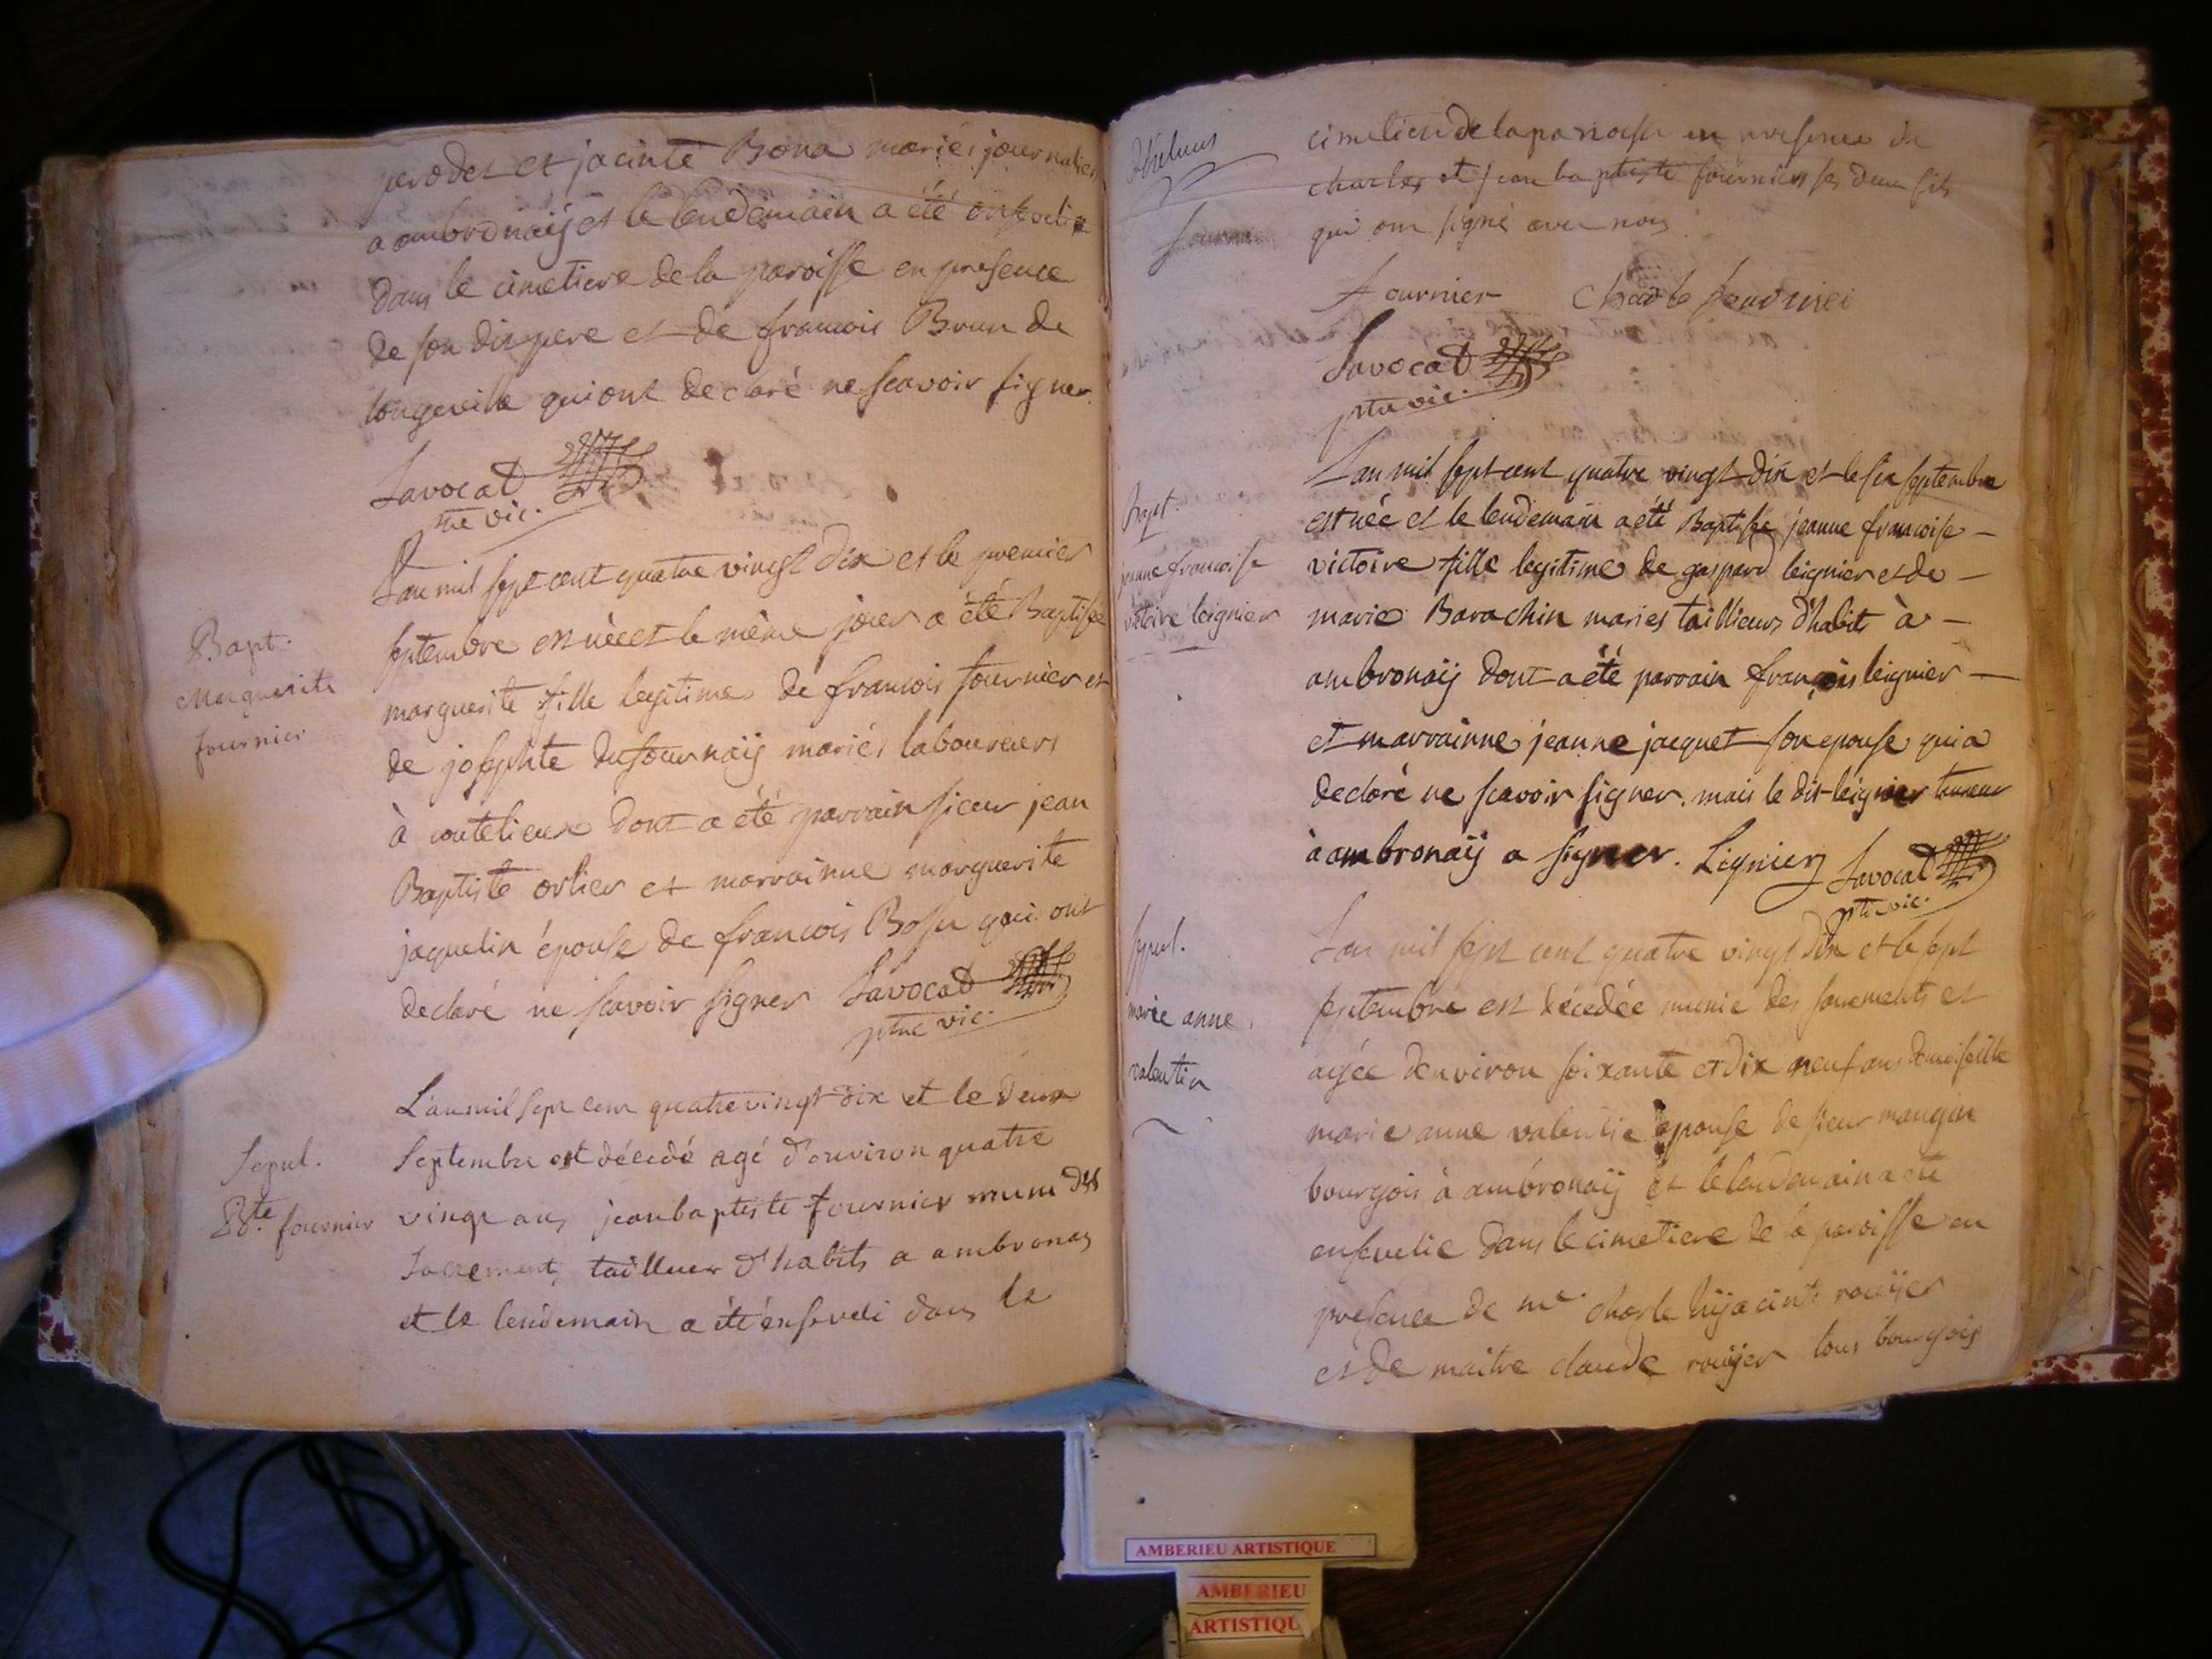 perodet et jacinte Bona mariés journaliers
a ambronaÿ et le lendemain a été ensevelie
dans le cimetiere de la paroisse en presence
de son dit pere et de francois Brun de
longeville qui ont declaré ne scavoir signer.
Savocat
ptre vic.
Bapt.
Marguerite
fournier
L'an mil sept cent quatre vingt dix et le premier
septembre est née et le même jour a été Baptisée
marguerite fille legitime de francois fournier et
de josephte dufournaÿ mariés laboureurs
à coutelieux dont a été parrain sieur jean
Baptiste orlier et marrainne marguerite
jaquelin épouse de francois Bossu qui ont
declaré ne scavoir signer Savocat
ptre vic.
Sepul.
Bte. fournier
L'an mil sept cent quatre vingt dix et le deux
Septembre est décedé agé d'environ quatre
vingt ans jean baptiste fournier muni des
Sacrement, tailleur d'habits a ambronay
et le lendemain a été ensevéli dans le
cimetiere de la paroisse en presence de
charles et jean baptiste fourniers ses deux fils
qui ont signé avec nous
fournier
Charle
Savocat
ptre vic.
Bapt.
jeanne francoise
victoire leignier
L'an mil sept cent quatre vingt dix et le six septembre
est née et le lendemain a été Baptisée jeanne francoise -
victoire fille legitime de gaspard leignier et de -
marie Barachin maries taillieurs d'habits à -
ambronaÿ dont a été parrain françois leignier -
et marrainne jeanne jacquet son epouse qui a
declaré ne scavoir signer. mais le dit leignier
à ambronaÿ a signer. Lignier Savocat
ptre vic.
sepul.
marie anne
valentin
L'an mil sept cent quatre vingt dix et le sept
septembre est décedée munie des sacrements et
agée denviron soixante et dix neuf ans demoiselle
marie anne valentin épouse de sieur mangin
bourgois à ambronaÿ et le lendemain a été
ensevelie dans le cimetiere de la paroisse en
presence de me. charle hÿacinte rouÿer
et de maitre claude rouÿer tous bourgois
AMBERIEU ARTISTIQUE
AMBERIEU
ARTISTIQU